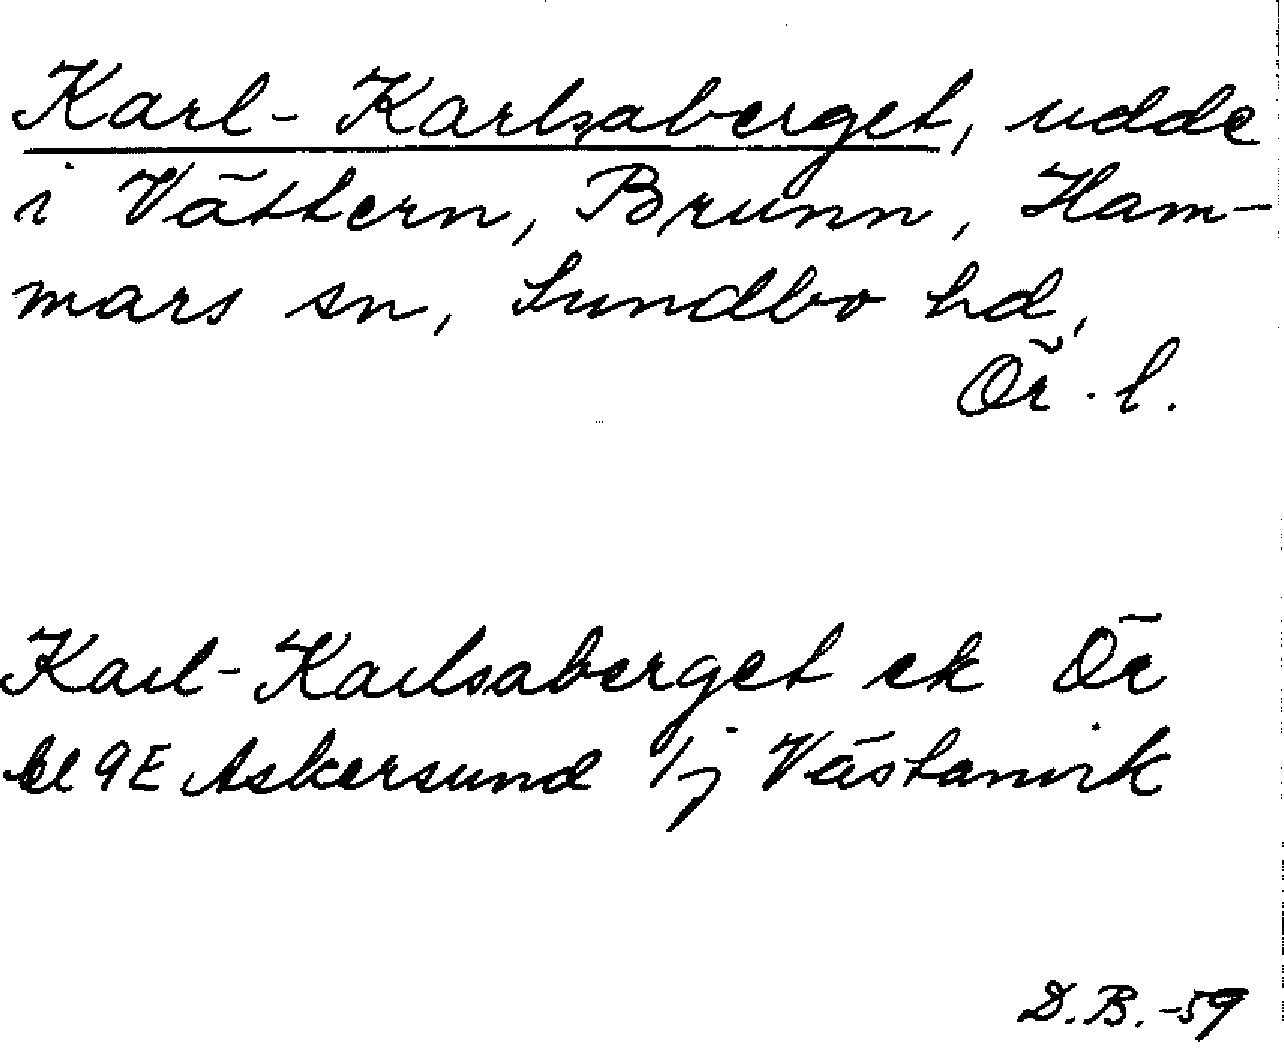 Karl-Karlsaberget, udde
i Vättern, Brunn, Ham-
mars sn, Sundbo hd,
Ör. l.
Karl-Karlsaberget ek Ör
bl 9E Askersund 1j Västanvik
D.B.-59